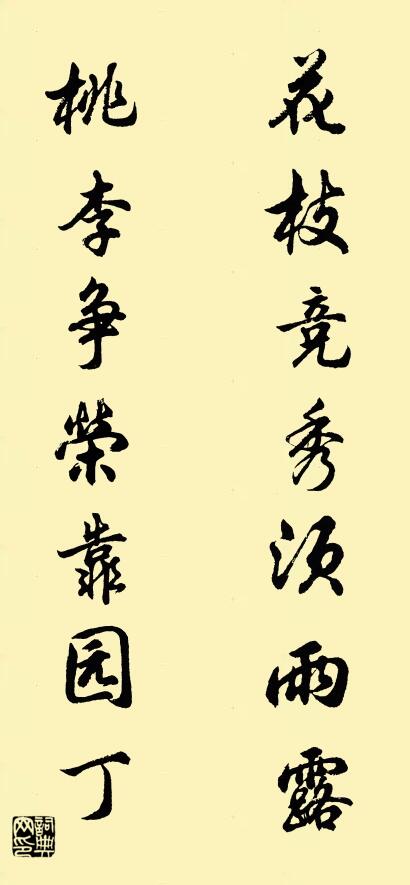 花枝竞秀须雨露
桃李争榮靠园丁
詞典网印